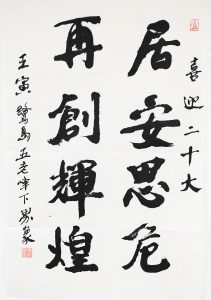 喜迎二十大
居安思危
再創輝煌
壬寅鷺島五老峯下